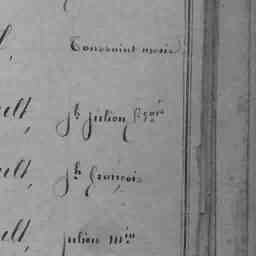 l, Toussaint marie
ult, jh julien fçois
ult, jh françois
ult, julien mie